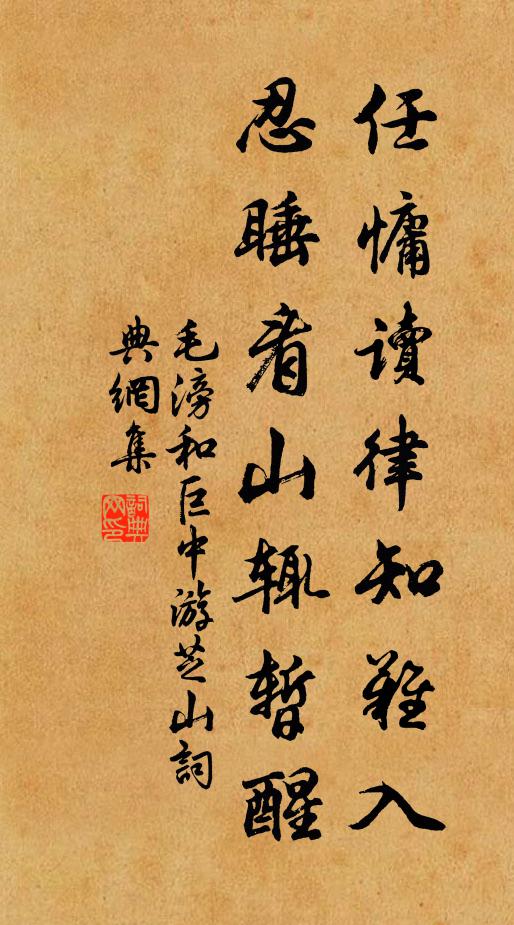 任慵讀律知難入
忍睡看山輒暫醒
毛滂和巨中游芝山詞
典網集
詞典
网印